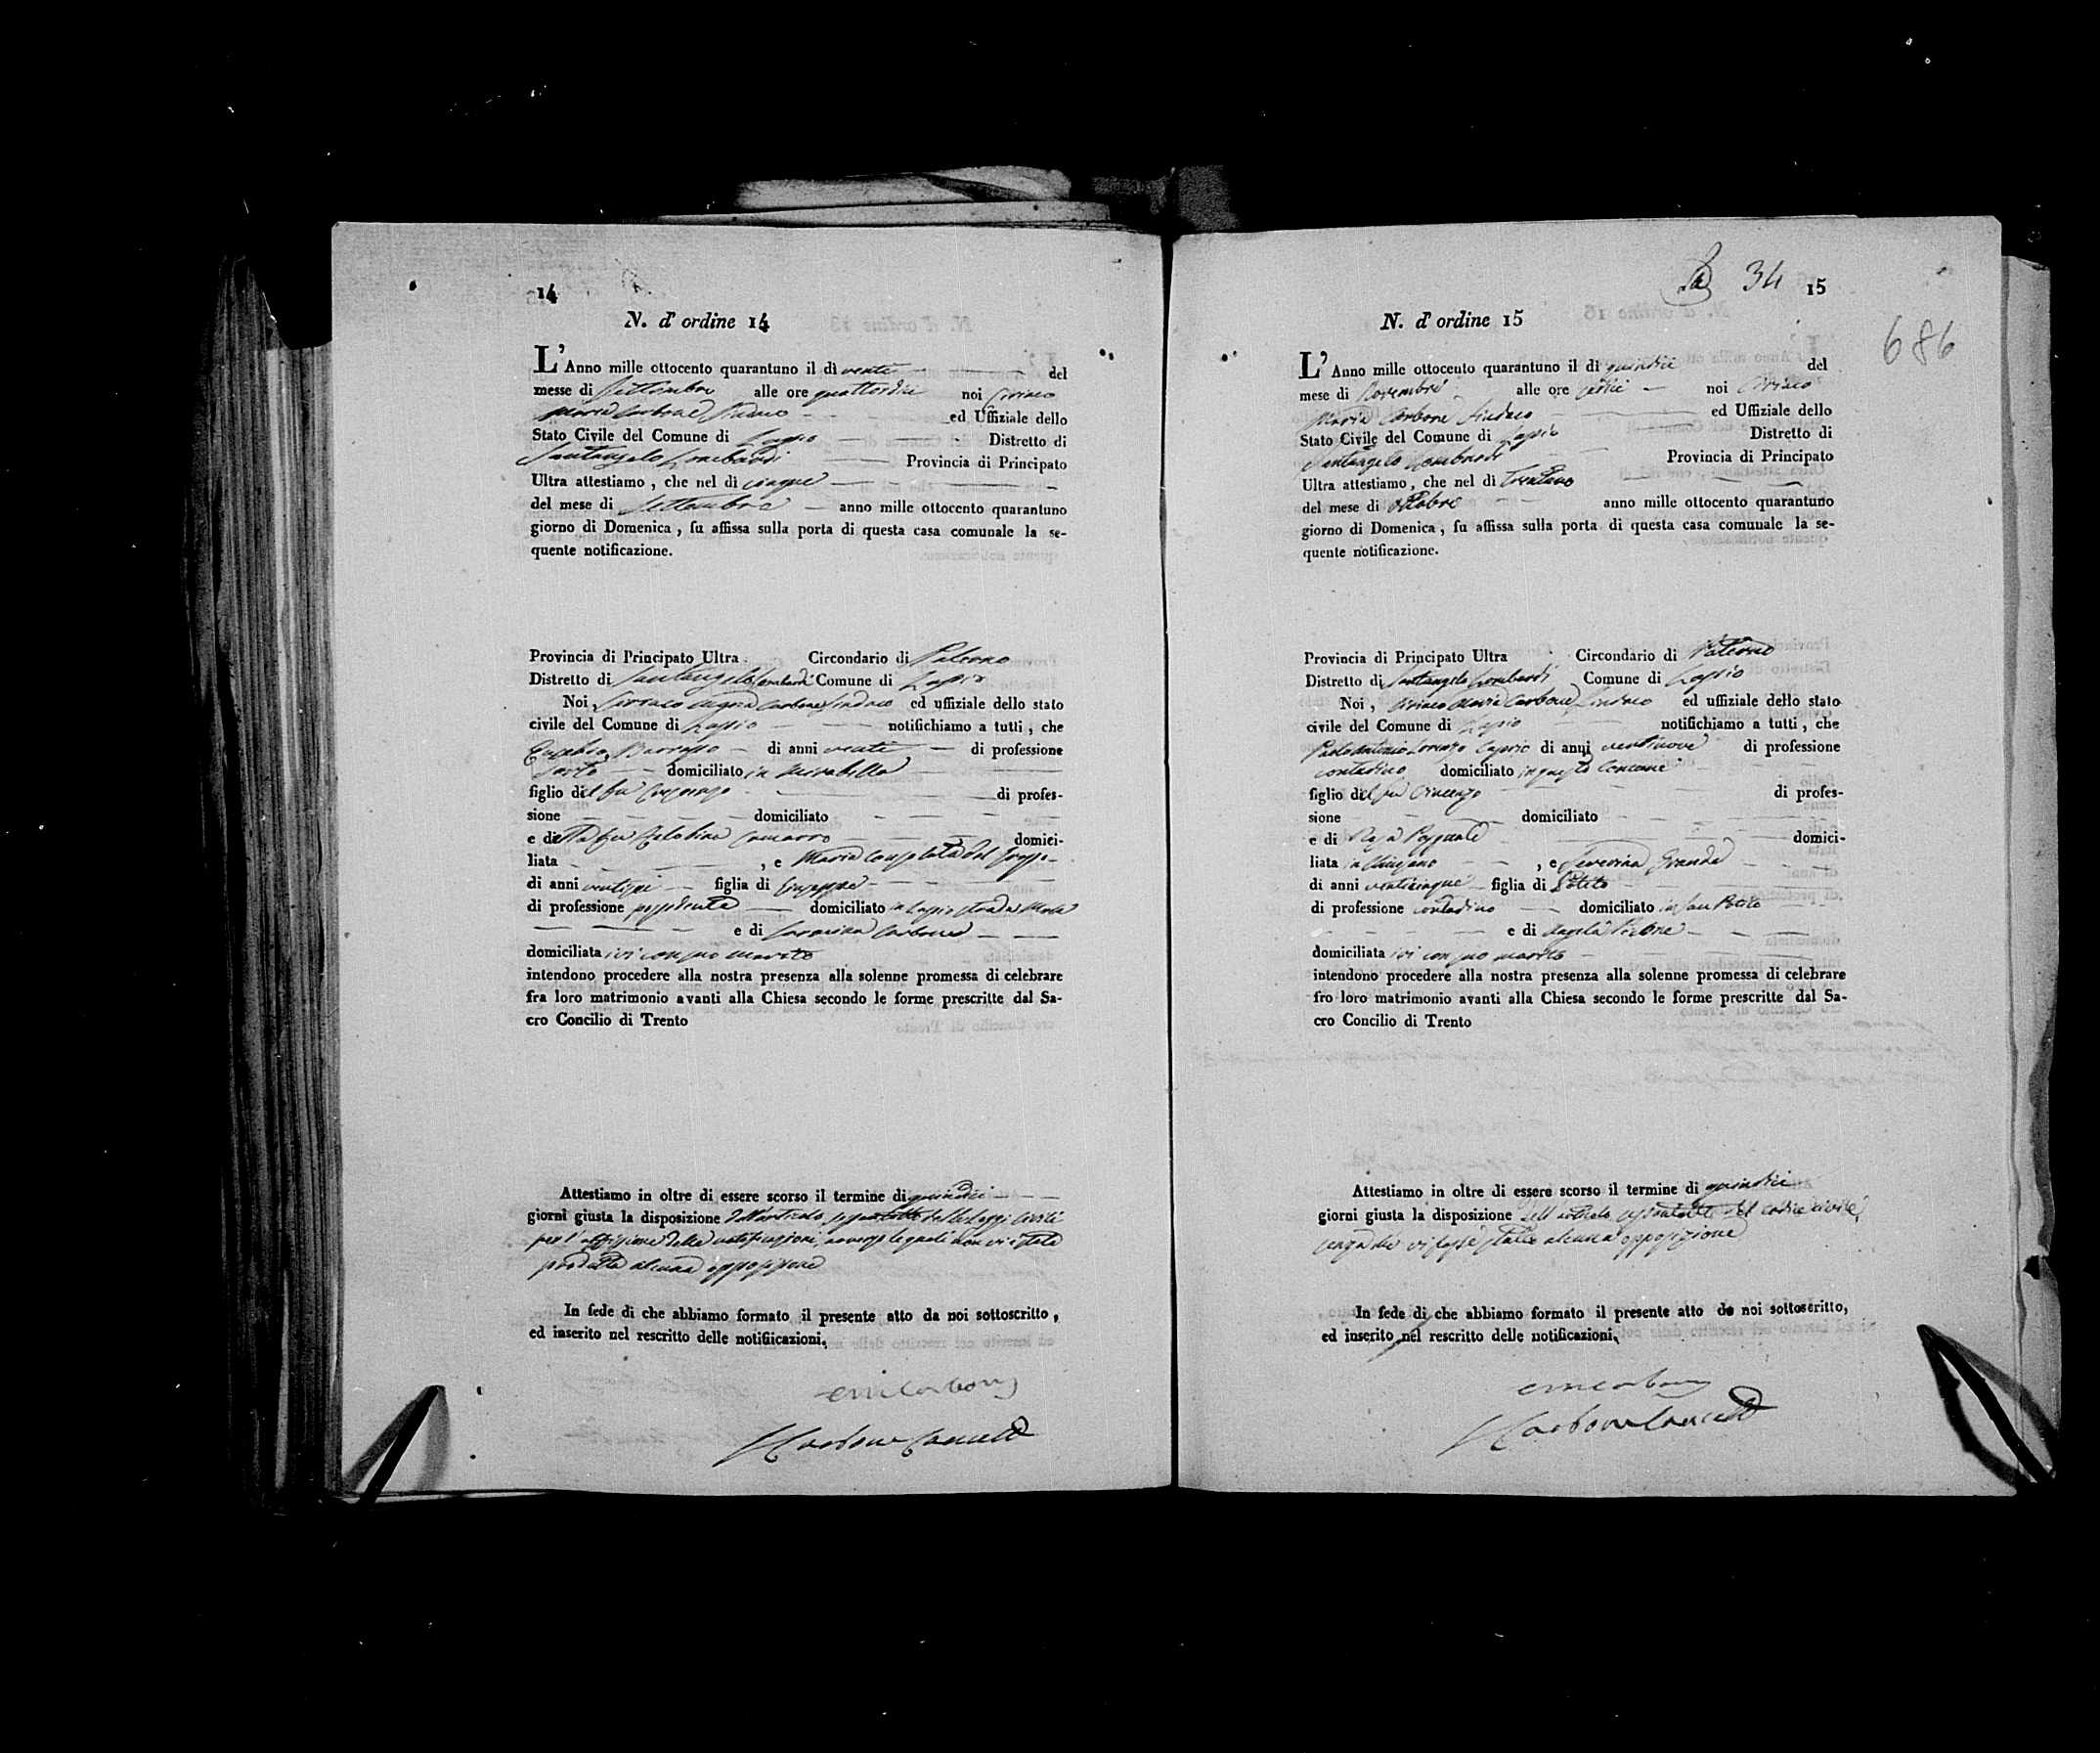 14
N. d' ordine 14
L' Anno mille ottocento quarantuno il dì venti del
messe di Settembre alle ore quattordici noi Ciriaco
Maria Carbone Sindaco ed Uffiziale dello
Stato Civile del Comune di Lapio Distretto di
Santangelo Lombardi Provincia di Principato
Ultra attestiamo, che nel dì cinque
del mese di Settembre anno mille ottocento quarantuno
giorno di Domenica, fu affissa sulla porta di questa casa comunale la se-
quente notificazione.
Provincia di Principato Ultra. Circondario di Paterno
Distretto di Santangelo Lombardi Comune di Lapio
Noi Ciriaco Maria Carbone Sindaco ed uffiziale dello stato
civile del Comune di Lapio notifichiamo a tutti, che
Eusebio di anni venti di professione
sarto domiciliato in Mirabella
figlio del fu di profes-
sione domiciliato
e della fu domici-
liata , e Maria Consolata del
di anni ventisei figlia di Giuseppe
di professione possidente domiciliato in Lapio strada
e di Carmina Carbone
domiciliata ivi con suo marito
intendono procedere alla nostra presenza alla solenne promessa di celebrare
fra loro matrimonio avanti alla Chiesa secondo le forme prescritte dal Sa-
cro Concilio di Trento
Attestiamo in oltre di essere scorso il termine di quindici
giorni giusta la disposizione dell'articolo delle Leggi Civili
per l'affissione delle notificazioni, avverso le quali non vi è stata
prodotta alcuna opposizione
In fede di che abbiamo formato il presente atto da noi sottoscritto,
ed inserito nel rescritto delle notifiicazioni.
CMCarbone
Carbone Cancell
34 15
686
N. d' ordine 15
L' Anno mille ottocento quarantuno il dì quindici del
mese di Novembre alle ore sedici noi Ciriaco
Maria Carbone Sindaco ed Uffiziale dello
Stato Civile del Comune di Lapio Distretto di
Santangelo Lombardi Provincia di Principato
Ultra attestiamo, che nel dì Trentuno
del mese di Ottobre anno mille ottocento quarantuno
giorno di Domenica, fu affissa sulla porta di questa casa comunale la se-
quente notificazione.
Provincia di Principato Ultra Circondario di Paterno
Distretto di Santangelo Lombardi Comune di Lapio
Noi, Ciriaco Maria Carbone Sindaco ed uffiziale dello stato
civile del Comune di Lapio notifichiamo a tutti, che
Paolo Antonio Lorenzo Caprio di anni ventinove di professione
contadino domiciliato in questo Comune
figlio del fu Vincenzo di profes-
sione domiciliato
e di Rosa Pasquale domici-
liata in , e Severina Grande
di anni venticinque figlia di Potito
di professione contadino domiciliato in San Potito
e di Angela
domiciliata ivi con suo marito
intendono procedere alla nostra presenza alla solenne promessa di celebrare
fro loro matrimonio avanti alla Chiesa secondo le forme prescritte dal Sa-
cro Concilio di Trento
Attestiamo in oltre di essere scorso il termine di quindici
giorni giusta la disposizione dell'articolo del codice civile,
senza che vi fosse stata alcuna opposizione
In fede di che abbiamo formato il presente atto da noi sottoscritto,
ed inserito nel rescritto delle notificazioni.
CMCarbone
Carbone Cancell